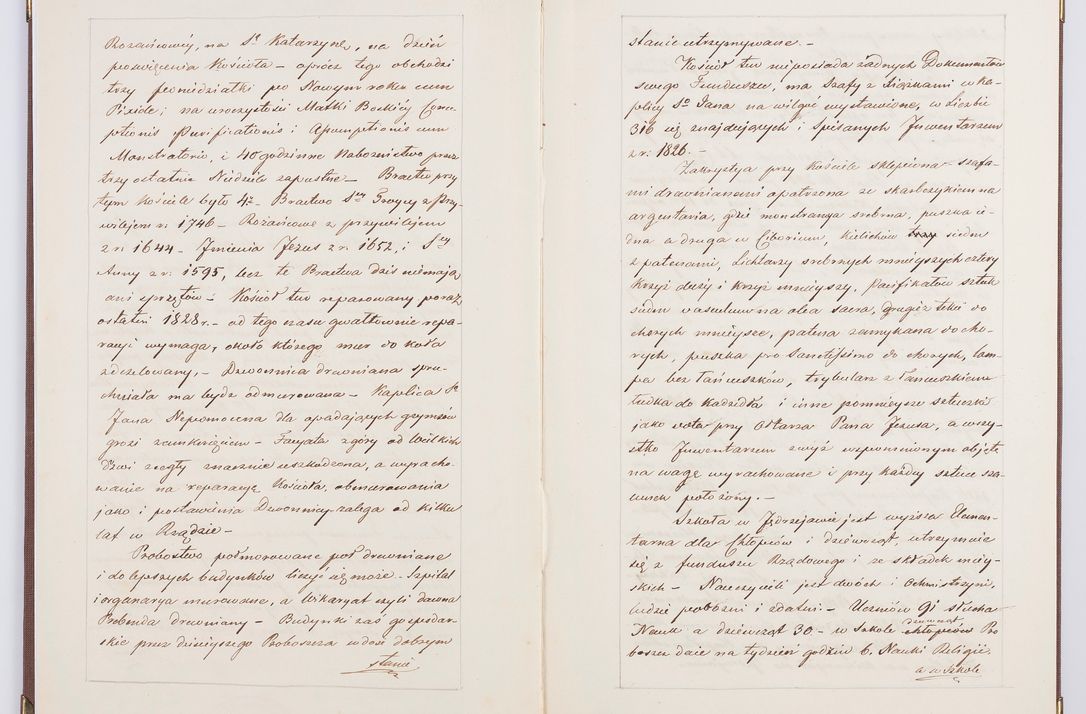 Rożańcowéy, na Sn Katarzynę, na dzień
poswięcenia Kościoła – oprócz tego obchodzi
trzy Poniedziałki po Nowym roku cum
Pixide; na uroczystości Matki Boskiéy Conce
ptionis Purificationis i Assumptionis cum
Monstratorio, i 40 godzinne Nabożeństwo przez
trzy ostatnie Niedziele zapustne – Bractw przy
tym kościele było 4. – Bractwo Stey Troycy z Przy-
wilejem r: 1746 – Rożańcowe z przywilejem
z r: 1644 – Jmienia Jezus z r: 1652, i Stey
Anny z r: 1595, lecz te Bractwa dziś niemają
ani sprzętów – Kościół ten reparowany poraz
ostatni 1828 r. – od tego czasu gwałtownie repa-
racyi wymaga, około którego mur do koła
zdezelowany, – Dzwonnica drewniana spru-
chniała ma bydz odmurowana – Kaplica Sn
Jana Nepomocena dla opadających gzymsów
grozi zamknięciem – Facyata z góry od Wielkich
Drzwi z cegły znacznie uszkodzona, a wyracho-
wanie na reparacyą Kościoła, obmurowania
jako i postawienia Dzwonnicy zalega od kilku
lat w Rządzie –
Probostwo połmurowane poł drewniane
i do lepszych budynków liczyć się może – Szpital
i organarya murowane, a Wikaryat czyli dawna
Prebenda drewniany – Budynki zaś gospodar-
skie przez dzisieyszego Proboszcza w dość dobrym
stanie
stanie utrzymywane. –
Kościół ten nieposiada żadnych Dokumentów
swego Funduszu, ma Szafy z Xiążkami w Ka-
plicy Sgo Jana na wilgoć wystawione, w Liczbie
316 się znajdujących i Spisanych Jnwentarzem
z r: 1826. –
Zakrystya przy Kościele sklepiona szafa-
mi drewnianemi opatrzona ze skarbczykiem na
argentaria, gdzie monstrancya srebrna, puszka ie-
dna a druga w Ciborium, kielichów trzy siedm
z patenami, Lichtarzy srebrnych mnieyszych cztery
Krzyż duży i Krzyż mnieyszy, Pacifikałów sztuk
siedm vasculum na olea sacra, drugie też do
chorych mnieysze, patena zamykana do cho-
rych, puszka pro Sanctissimo do chorych, lam-
pa bez łańcuszków, trybularz z łańcuszkiem
łudka do Kadzidła i inne pomnieysze sztuczki
jako vota przy Ołtarzu Pana Jezusa, a wszy-
stko Jnwentarzem zwyż wspomnionym objęte
na wagę wyrachowane i przy każdey sztuce sza-
cunek położony. –
Szkoła w Jędrzejowie jest wyższa Elemen-
tarna dla Chłopców i dziewcząt, utrzymuie
się z funduszu Rządowego i ze składek miéy-
skich – Nauczycieli jest dwóch i Ochmistrzyni,
ludzie pobożni i zdatni. – Uczniów 91 słucha
Nauk a dziewcząt 30. – w Szkole chłopców dziewcząt Pro
boszcz daie na tydzień godzin 6. Nauki Religii.
a w Szkole